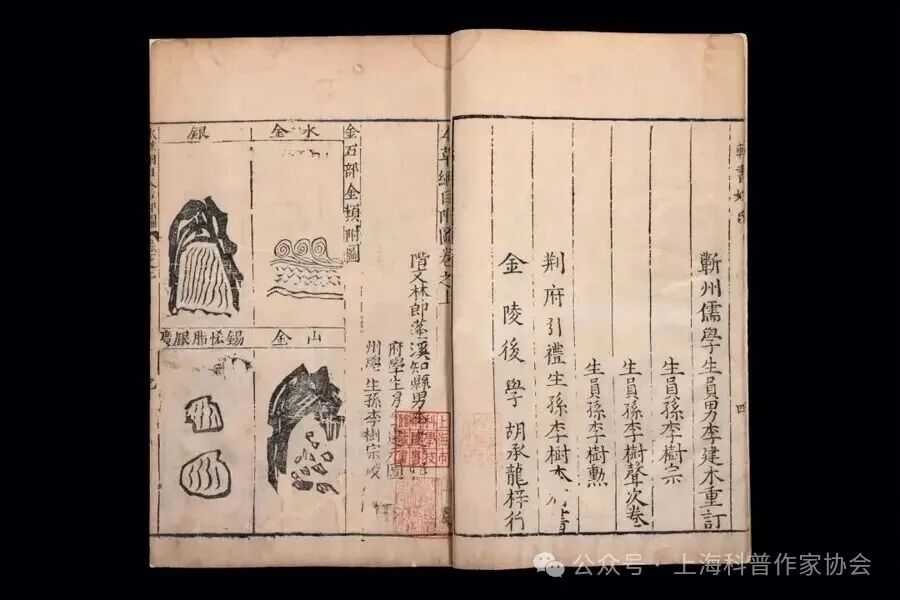 蘄州儒學生員男李建木重訂
生員孫李樹宗
生員孫李樹聲次卷
生員孫李樹勲
荆府引禮生孫李樹本
金陵後學胡承龍梓行
草綱目附圖卷之上
階文林郎蓬溪知縣男李建
府學生
州學生孫李樹宗校
金石部金類附圖
水金
山金
銀
錫恡脂銀
公众号 · 上海科普作家协会